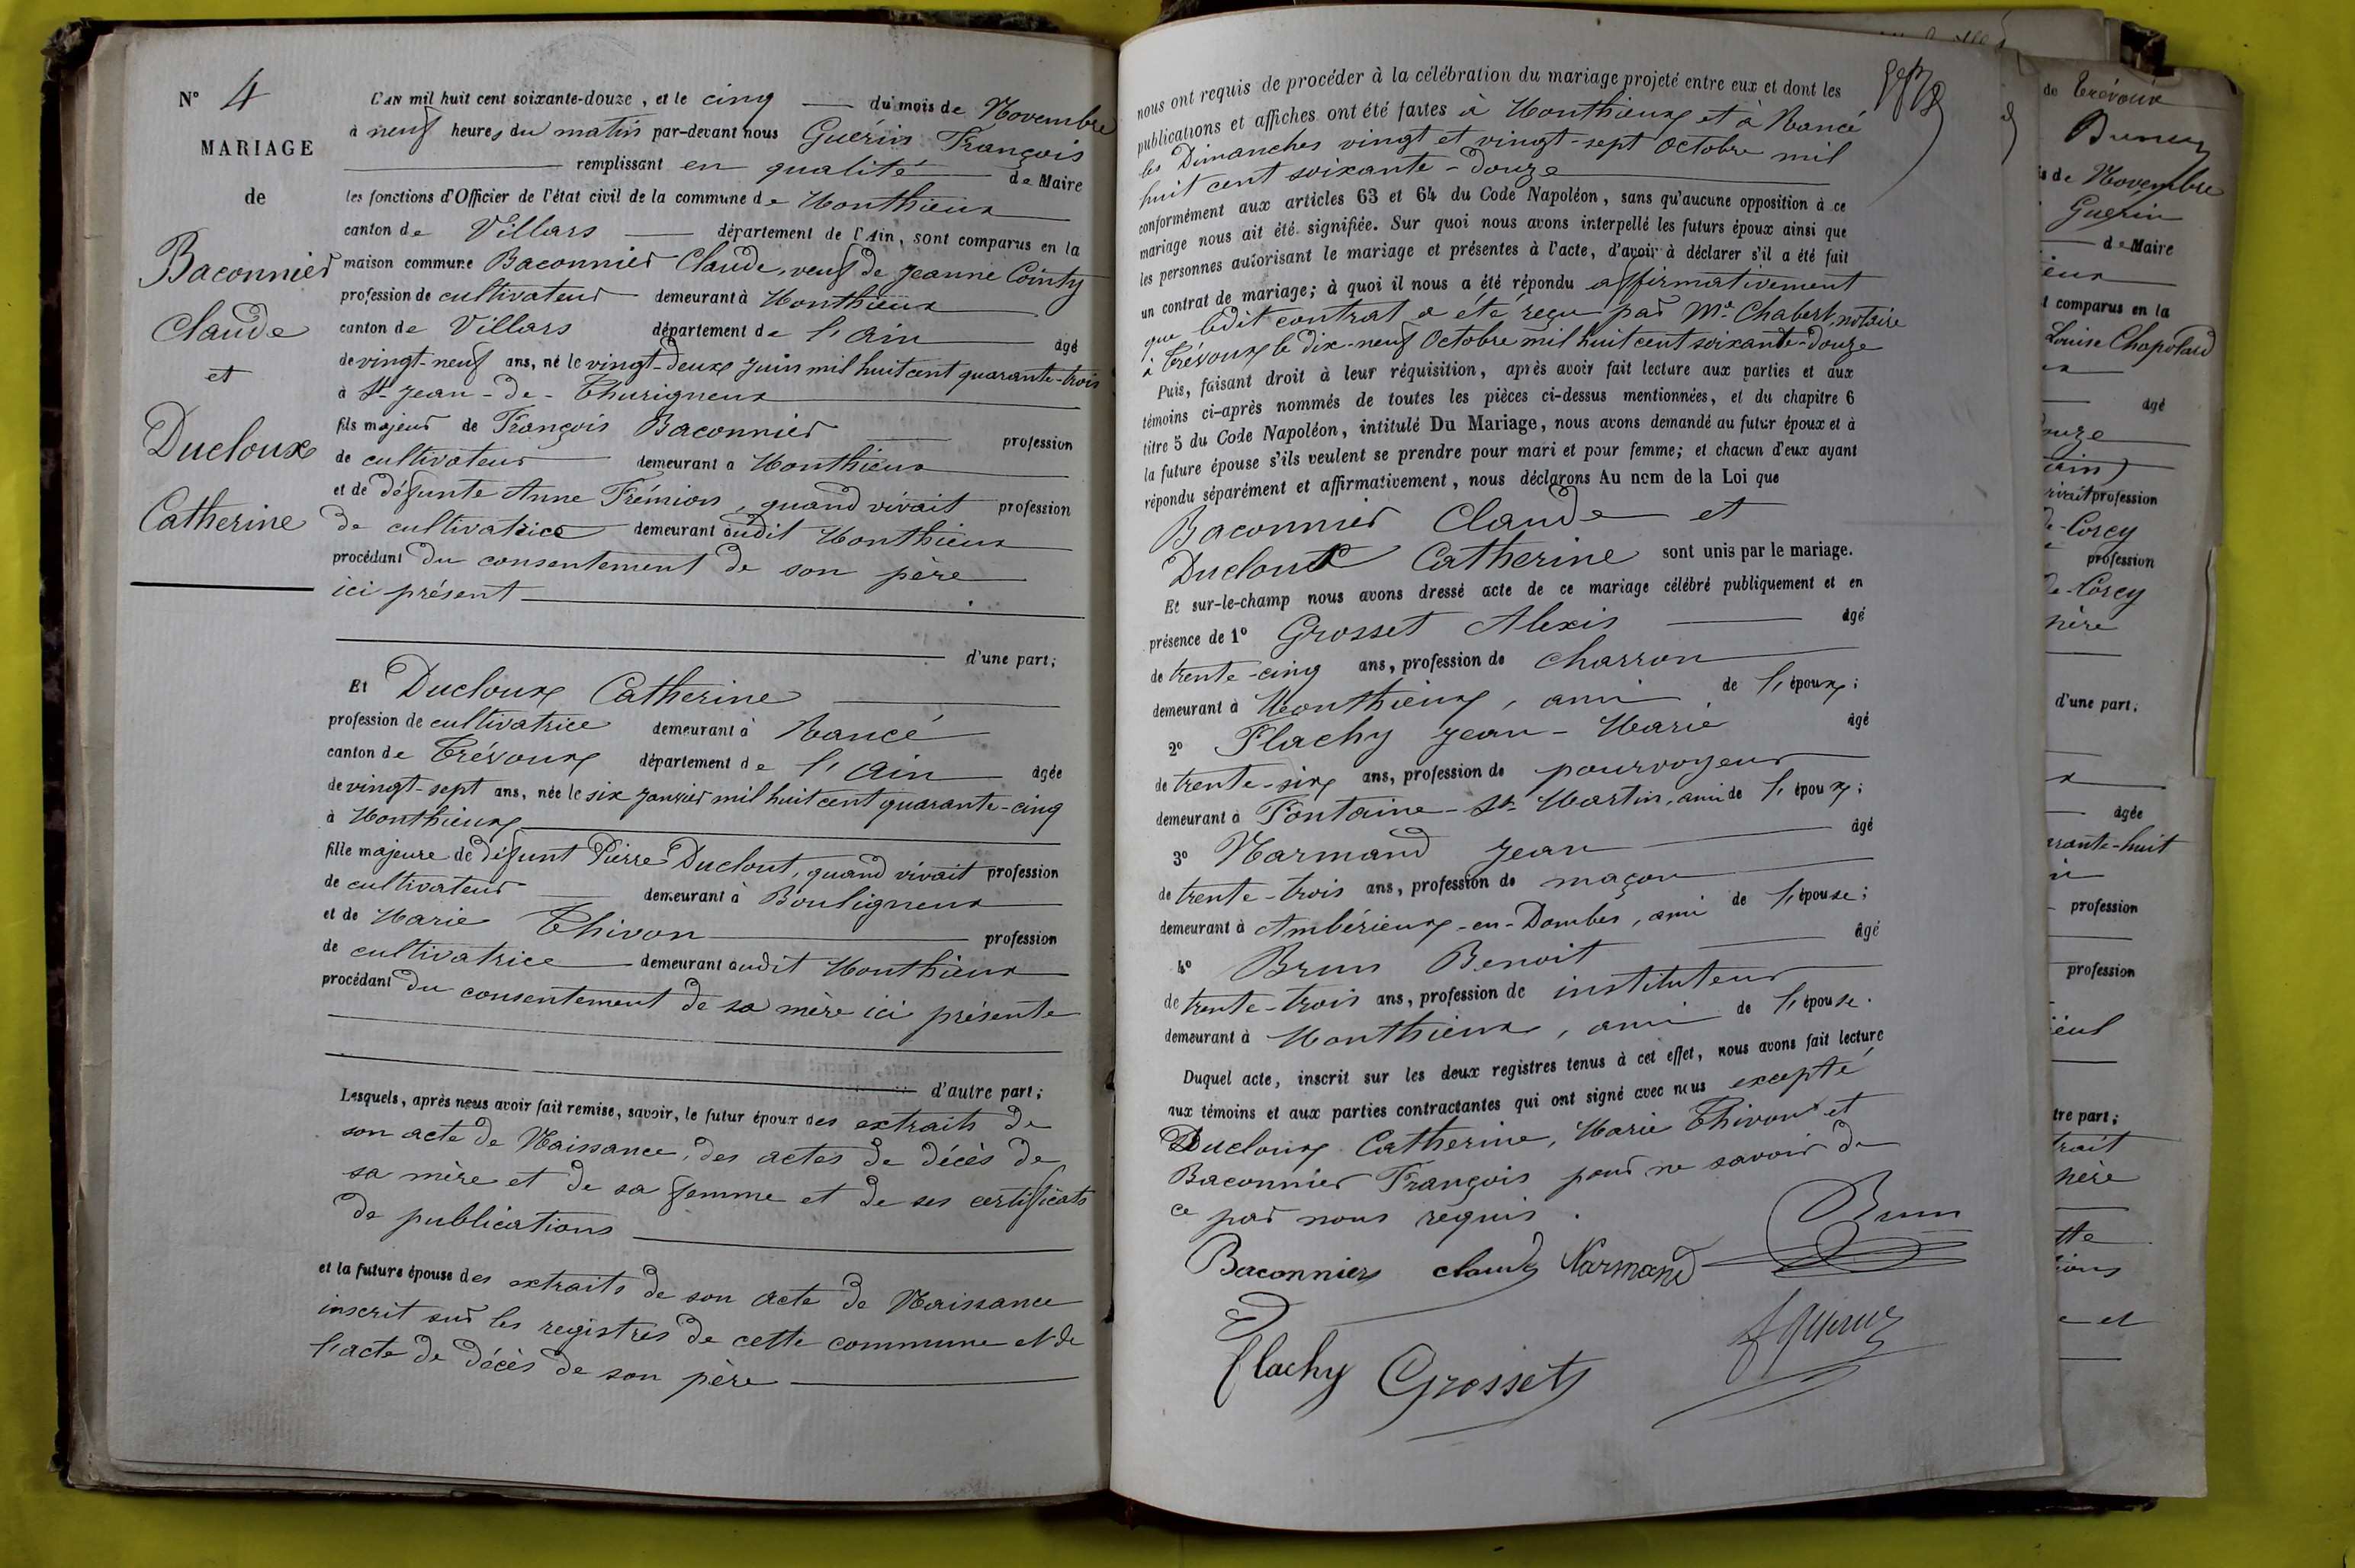 N° 4
MARIAGE
de
Baconnier
Claude
et
Ducloux
Catherine
L'AN mil huit cent soixante-douze, et le cinq du mois de Novembre
à neuf heures du matin par-devant nous Guérin François
remplissant en qualité de Maire
les fonctions d'Officier de l'état civil de la commune de Monthieux
canton de Villars département de l'Ain, sont comparus en la
maison commune Baconnier Claude, veuf de Jeanne Cointy
profession de cultivateur demeurant à Monthieux
canton de Villars département de l'Ain âgé
de vingt-neuf ans, né le vingt-deux Juin mil huit cent quarante-trois
à St Jean-de-Thurigneux
fils majeur de François Baconnier profession
de cultivateur demeurant à Monthieux
et de défunte Anne Frémion, quand vivait profession
de cultivatrice demeurant audit Monthieux
procédant du consentement de son père
ici présent
d'une part;
Et Ducloux Catherine
profession de cultivatrice demeurant à Rancé
canton de Trévoux département de l'Ain âgée
de vingt-sept ans, née le six Janvier mil huit cent quarante-cinq
à Monthieux
fille majeure de défunt Pierre Duclout, quand vivait profession
de cultivateur demeurant à Bouligneux
et de Marie Thivon profession
de cultivatrice demeurant audit Monthieux
procédant du consentement de sa mère ici présente
d'autre part;
Lesquels, après nous avoir fait remise, savoir, le futur époux des extraits de
son acte de Naissance, des actes de décès de
sa mère et de sa femme et de ses certificats
de publications
et la future épouse des extraits de son acte de Naissance
inscrit sur les registres de cette commune et de
l'acte de décès de son père
nous ont requis de procéder à la célébration du mariage projeté entre eux et dont les
publications et affiches ont été faites à Monthieux et à Rancé
les Dimanches vingt et vingt-sept Octobre mil
huit cent soixante-douze
conformément aux articles 63 et 64 du Code Napoléon, sans qu'aucune opposition à ce
mariage nous ait été signifiée. Sur quoi nous avons interpellé les futurs époux ainsi que
les personnes autorisant le mariage et présentes à l'acte, d'avoir à déclarer s'il a été fait
un contrat de mariage; à quoi il nous a été répondu affirmativement
que ledit contrat a été reçu par Me Chabert, notaire
à Trévoux le dix-neuf Octobre mil huit cent soixante-douze
Puis, faisant droit à leur réquisition, après avoir fait lecture aux parties et aux
témoins ci-après nommés de toutes les pièces ci-dessus mentionnées, et du chapitre 6
titre 5 du Code Napoléon, intitulé Du Mariage, nous avons demandé au futur époux et à
la future épouse s'ils veulent se prendre pour mari et pour femme; et chacun d'eux ayant
répondu séparément et affirmativement, nous déclarons Au nom de la Loi que
Baconnier Claude et
Duclout Catherine sont unis par le mariage.
Et sur-le-champ nous avons dressé acte de ce mariage célébré publiquement et en
présence de 1° Grosset Alexis âgé
de trente-cinq ans, profession de charron
demeurant à Monthieux, ami de l'époux;
2° Flachy Jean-Marie âgé
de trente-six ans, profession de pourvoyeur
demeurant à Fontaine-St-Martin, ami de l'époux;
3° Narmand Jean âgé
de trente-trois ans, profession de maçon
demeurant à Ambérieux-en-Dombes, ami de l'épouse;
4° Brun Benoit âgé
de trente-trois ans, profession de instituteur
demeurant à Monthieux, ami de l'épouse.
Duquel acte, inscrit sur les deux registres tenus à cet effet, nous avons fait lecture
aux témoins et aux parties contractantes qui ont signé avec nous excepté
Ducloux Catherine, Marie Thivon et
Baconnier François pour ne savoir de
ce par nous requis.
Brun
Baconnier claude Narmand
Flachy Grosset
de Trévoux
s de Novembre
Guérin
de Maire
ieux
t comparus en la
Louise Chapolard
âgé
ouze
profession
de-Corcy
profession
de-Corcy
père
d'une part;
âgée
arante-huit
profession
profession
tre part;
trait
père
tte
tions
et